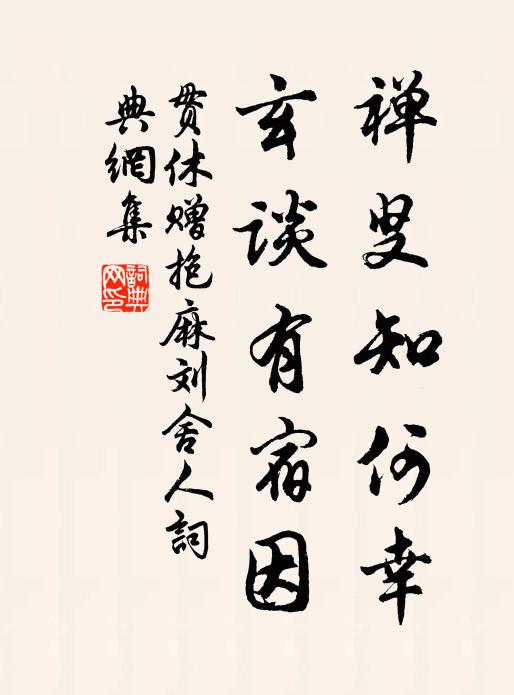 禅叟知何幸
玄谈有宿因
贯休赠抱麻刘舍人詞
典網集
詞典網印